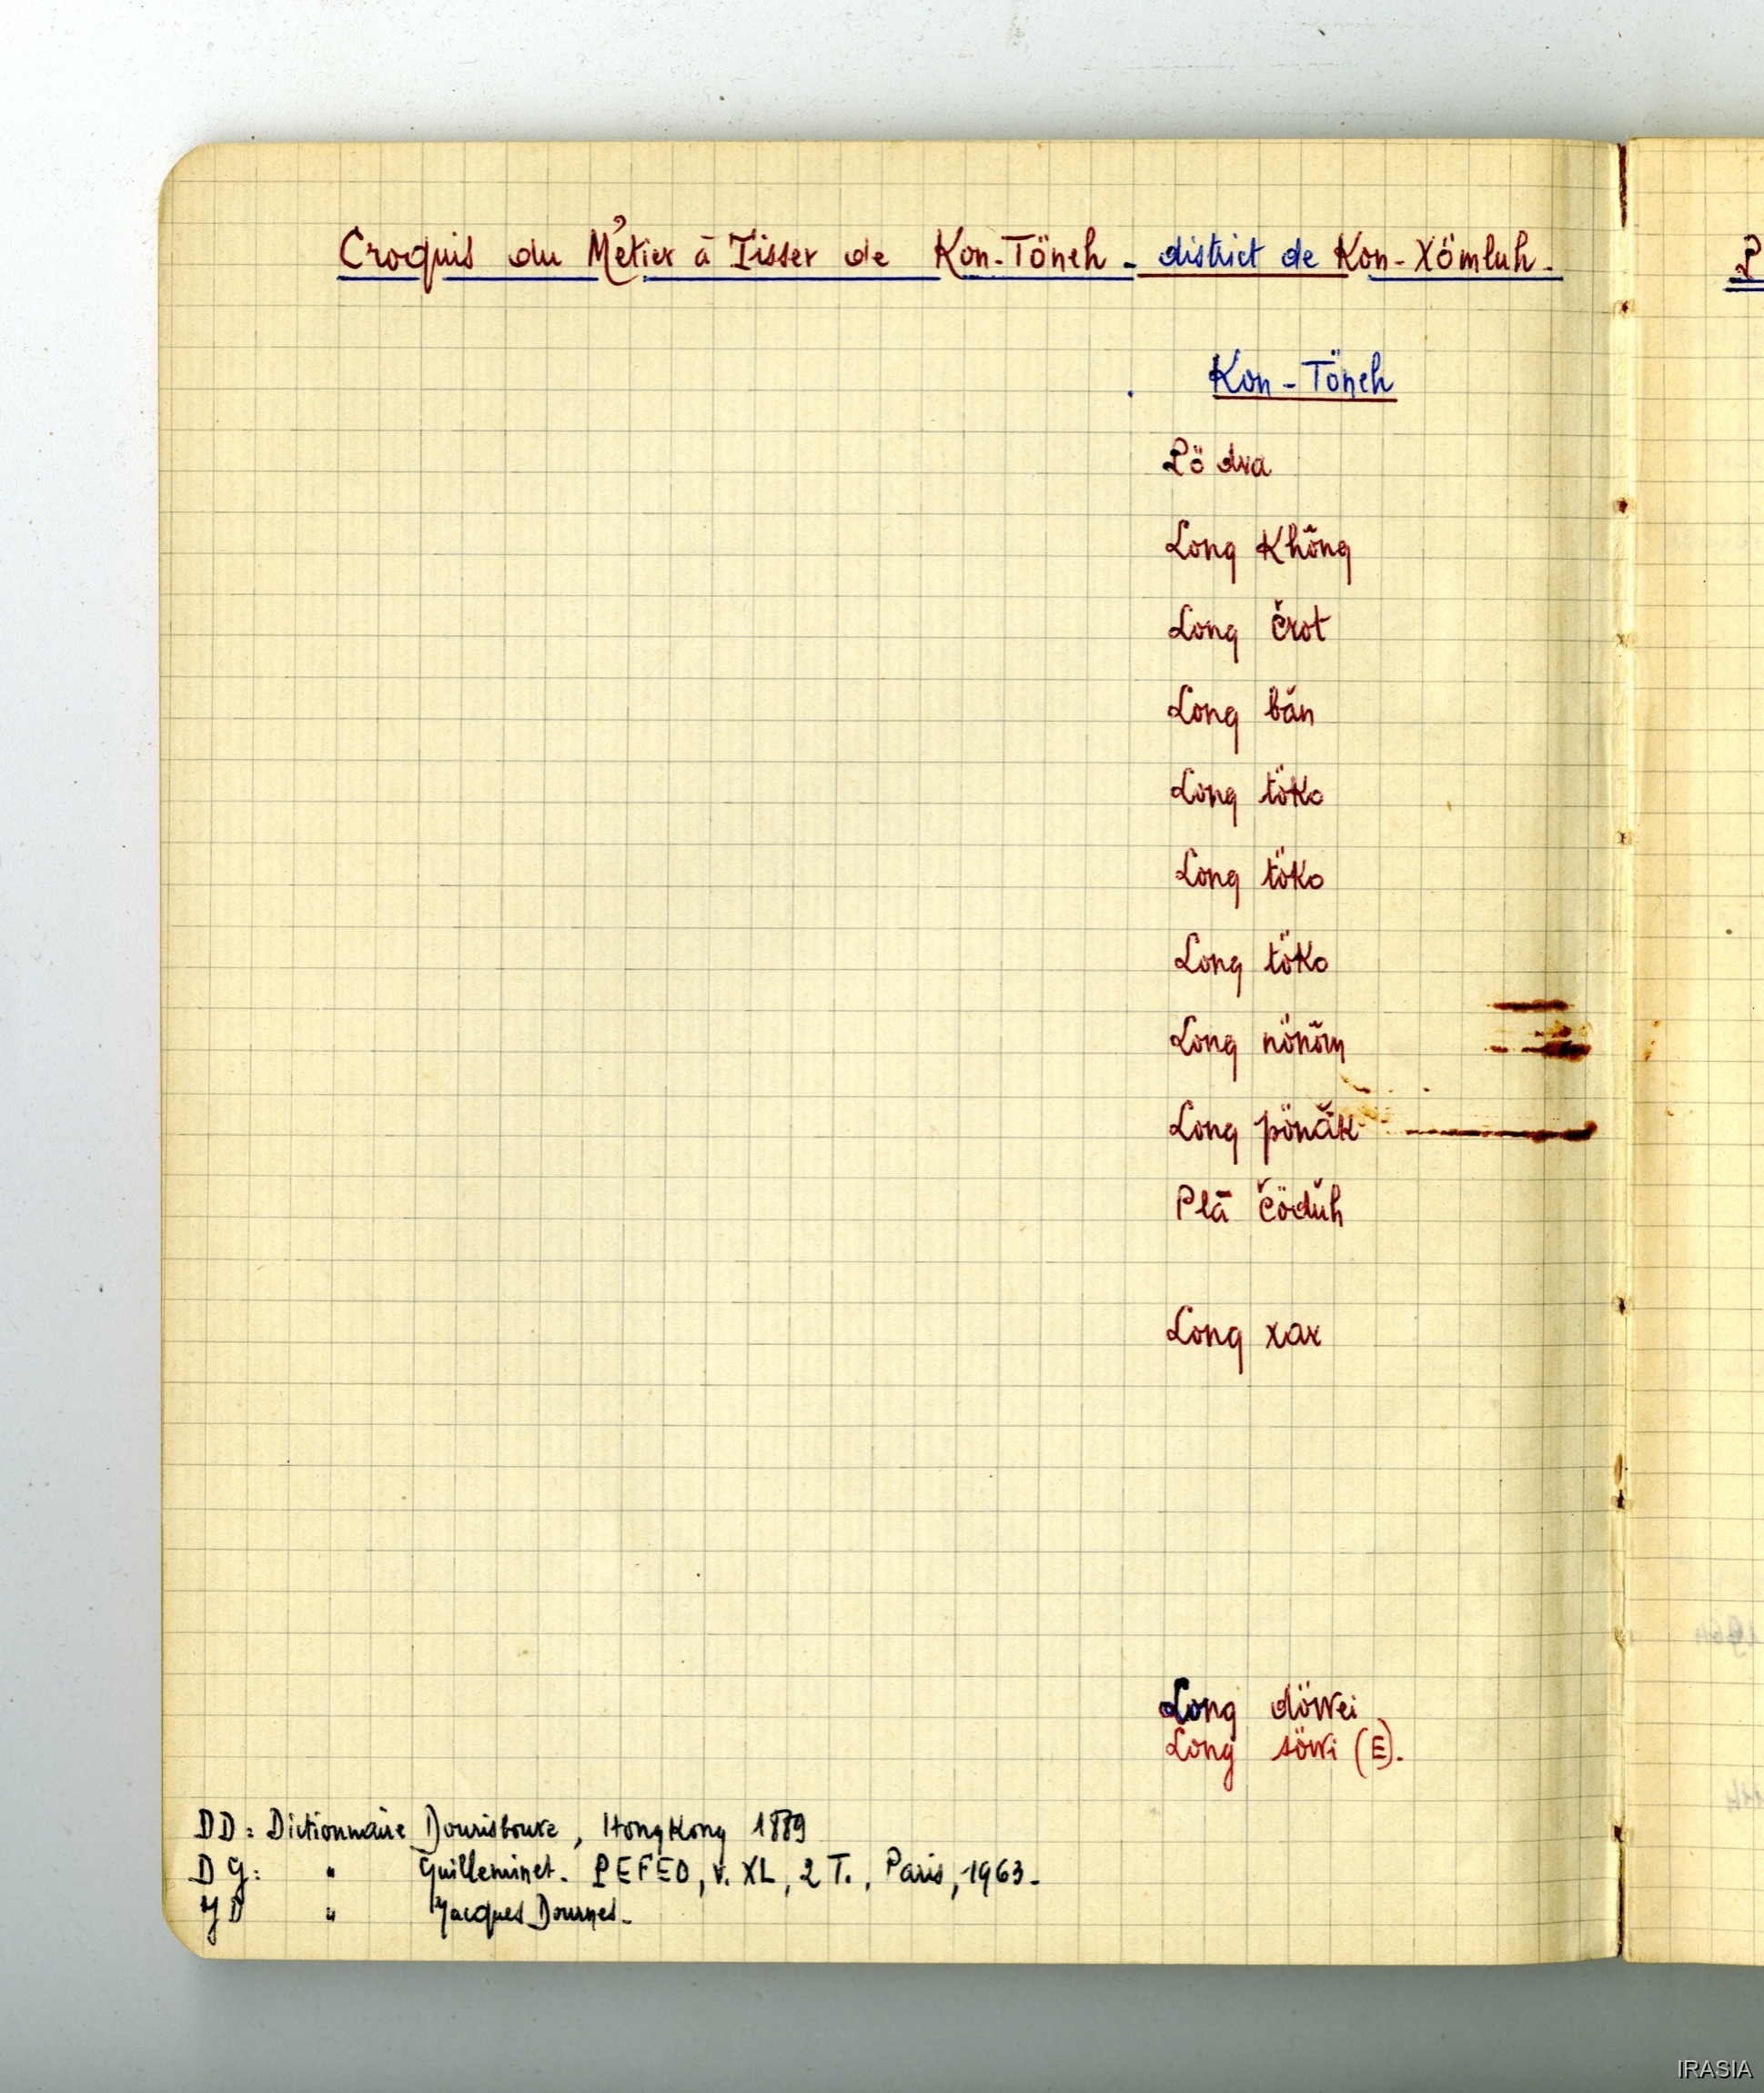 Croquis du Métier à Tisser de Kon-Töneh - district de Kon-Xömluh.
Kon-Töneh
Lö dra
Long Khŏng
Long črot
Long băn
Long töko
Long töko
Long töko
Long nönŏm
Long pönăk
Pla čödŭh
Long xar
Long döwei
Long söwi (E).
DD: Dictionnaire Dourisboure, HongKong 1889
DG: " Guilleminet. PEFEO, v. XL, 2 T., Paris, 1963.
JD " Jacques Dournes.
IRASIA